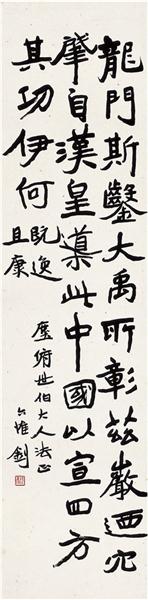 龍門斯鑿大禹所彰茲巖迺穴
肇自漢皇導此中國以宣四方
其功伊何既逸且康
世伯大人法正